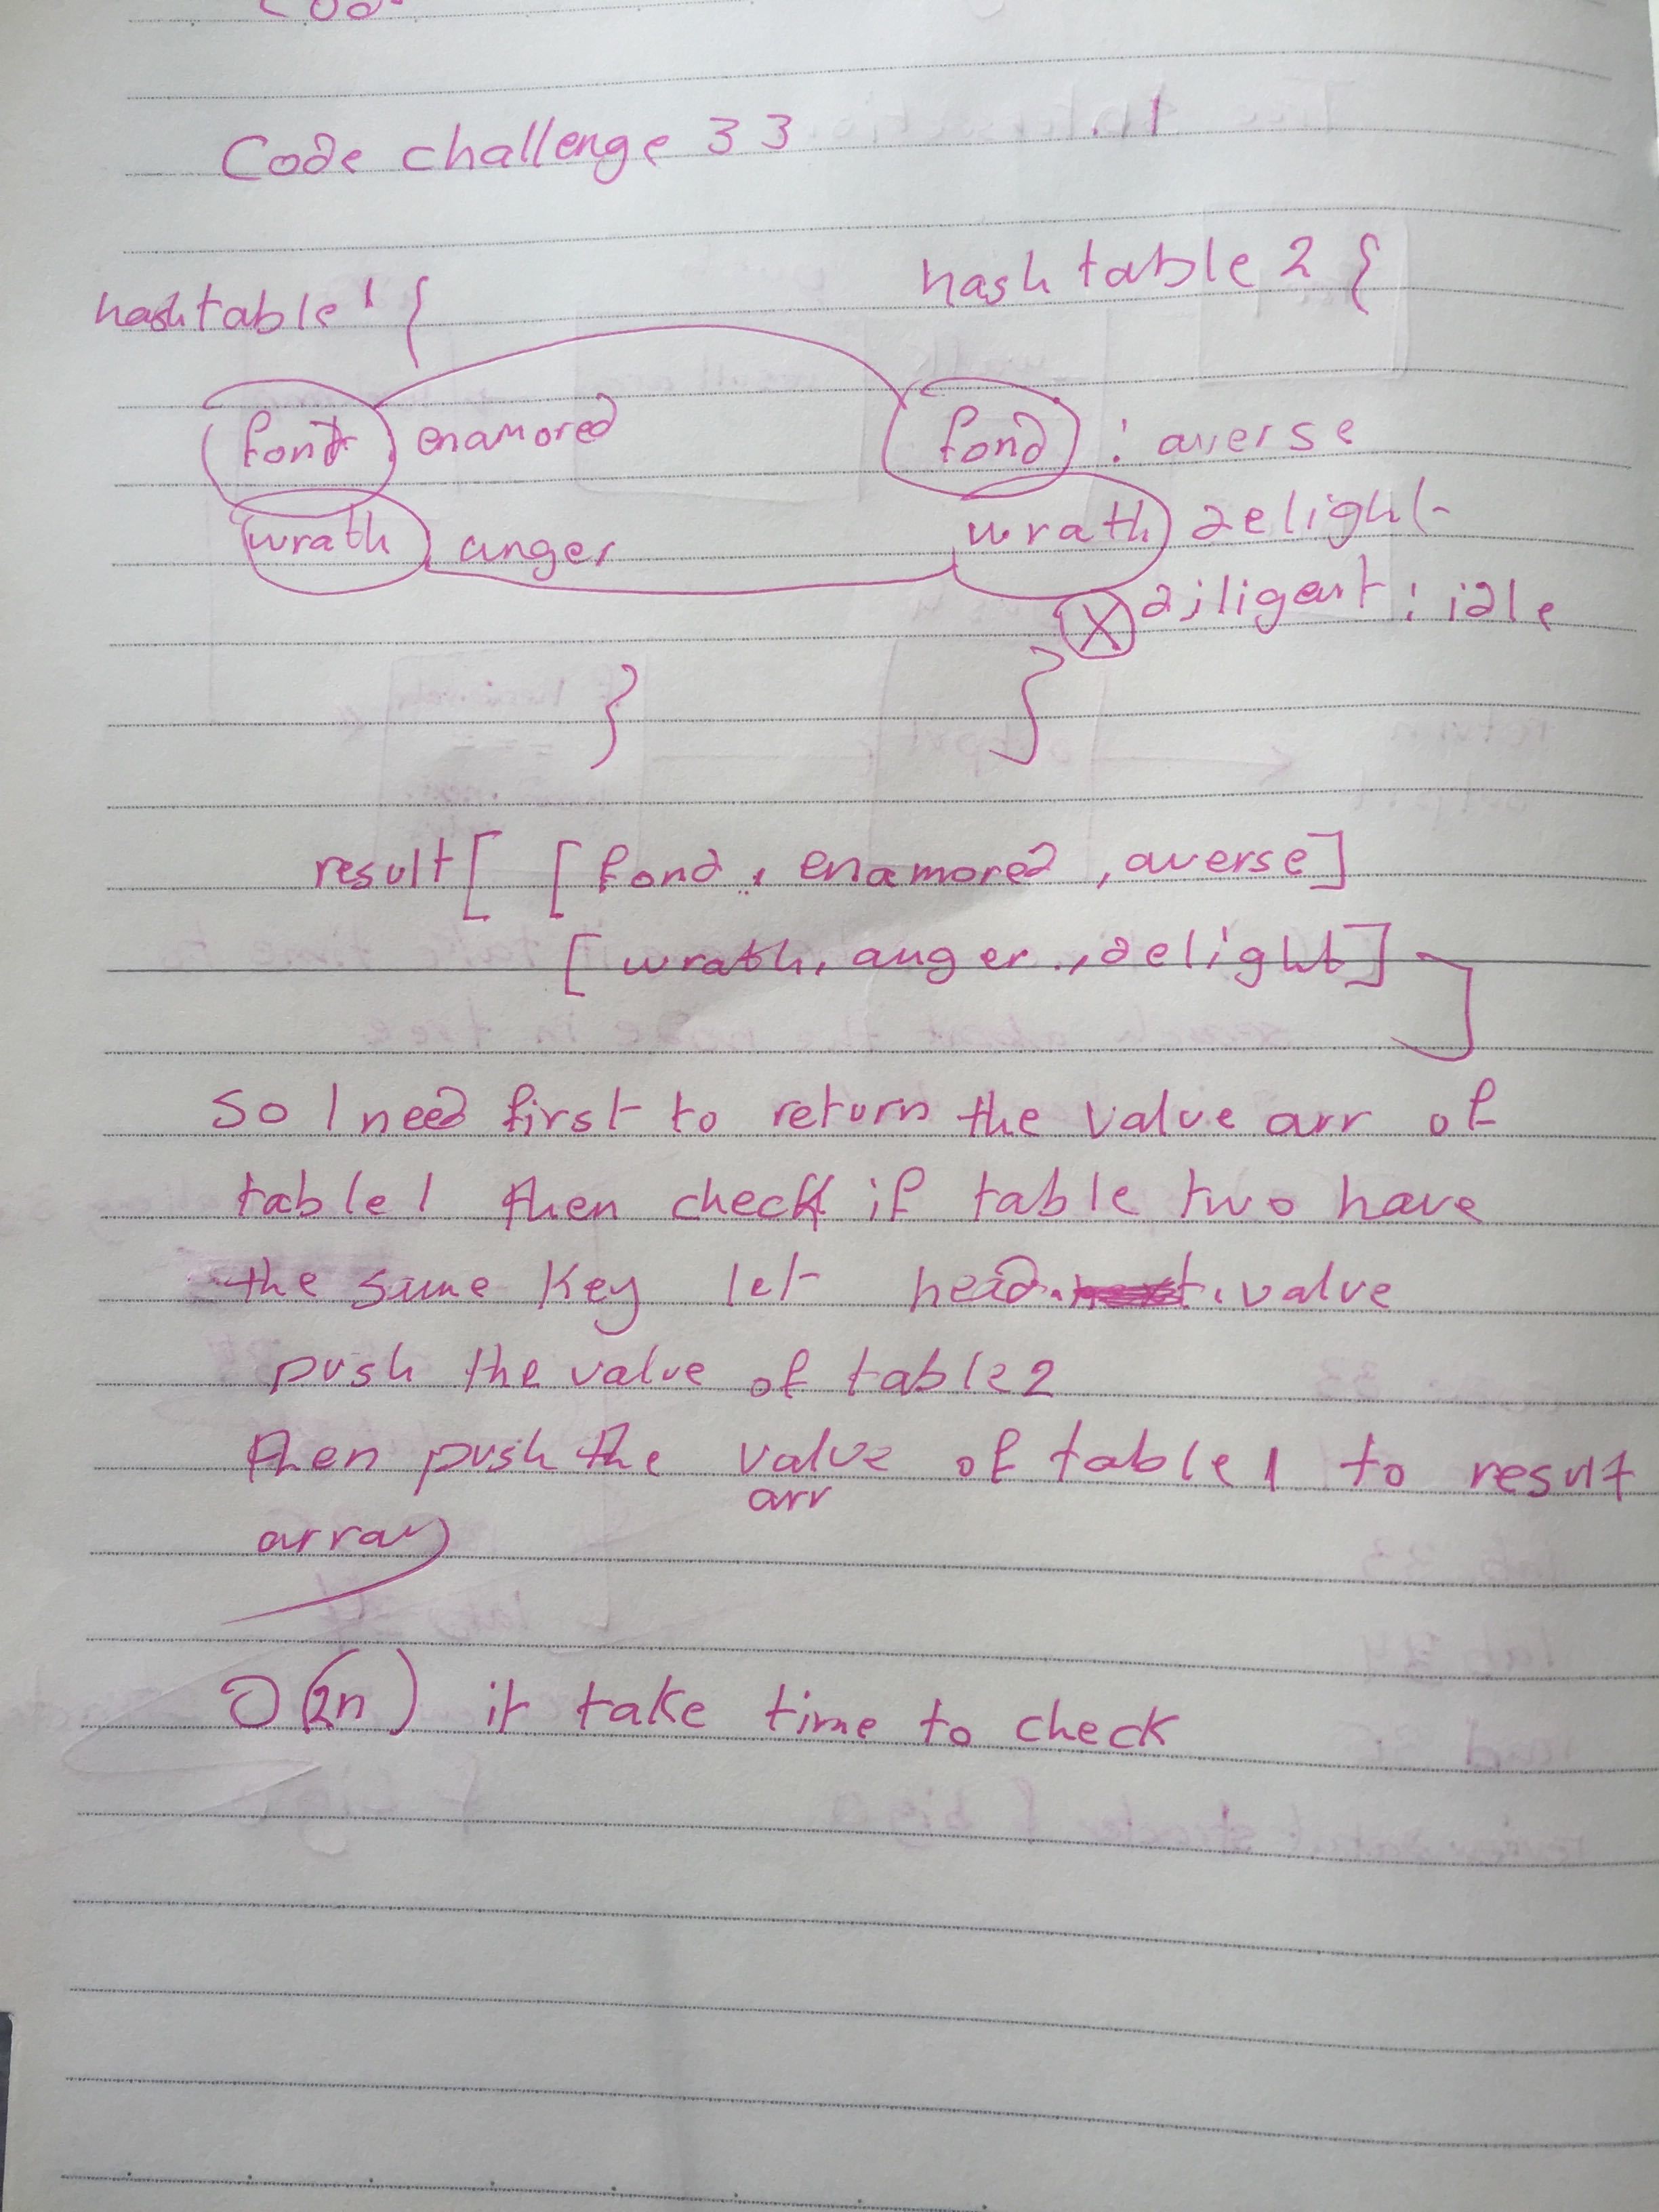 Code challenge 33
hashtable 1 {
hash table 2 {
fond enamored
fond : averse
wrath anger
wrath delight
X diligent : idle
}
}
result [ [ fond , enamored , averse ]
[ wrath, anger , delight ]
]
so I need first to return the value arr of
table 1 then check if table two have
the same key let head . value
push the value of table 2
then push the value of table 1 to result
arr
array
O(2n) it take time to check